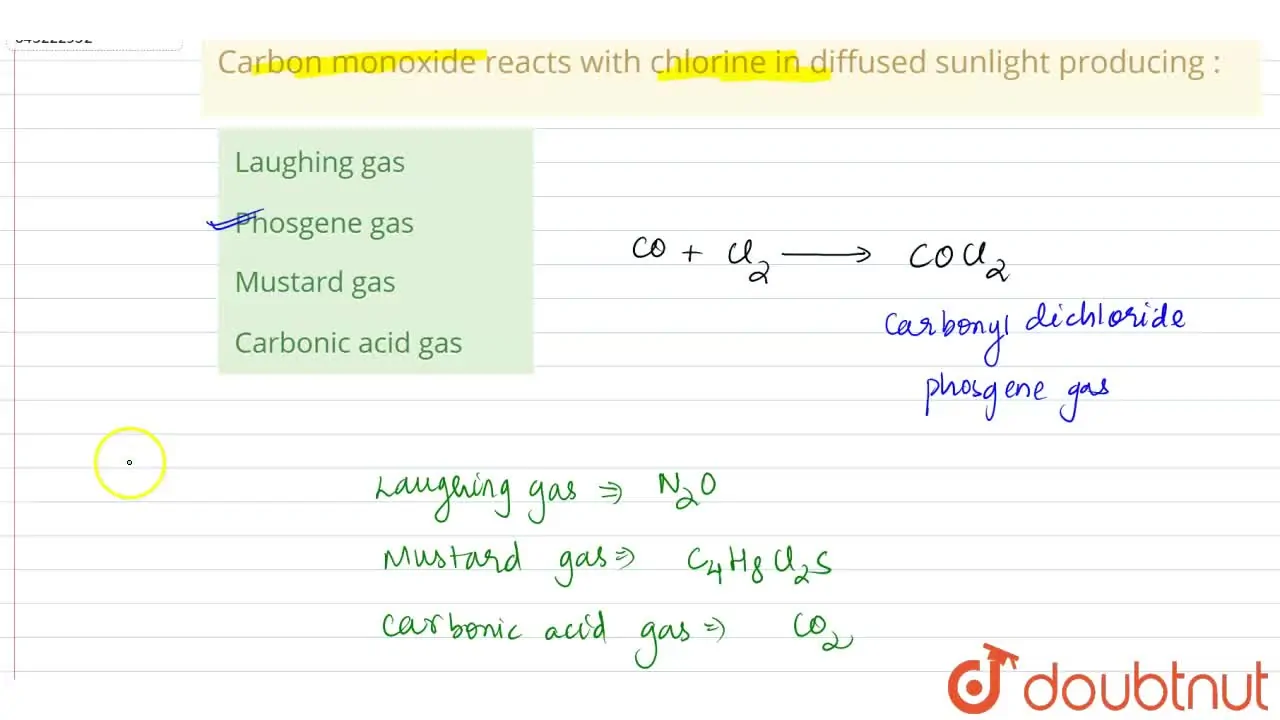 Carbon monoxide reacts with chlorine in diffused sunlight producing :
Laughing gas
Phosgene gas
Mustard gas
Carbonic acid gas
CO + Cl2 ⟶ COCl2
Carbonyl dichloride
phosgene gas
Laughing gas ⇒ N2O
Mustard gas ⇒ C4H8Cl2S
Carbonic acid gas ⇒ CO2
doubtnut